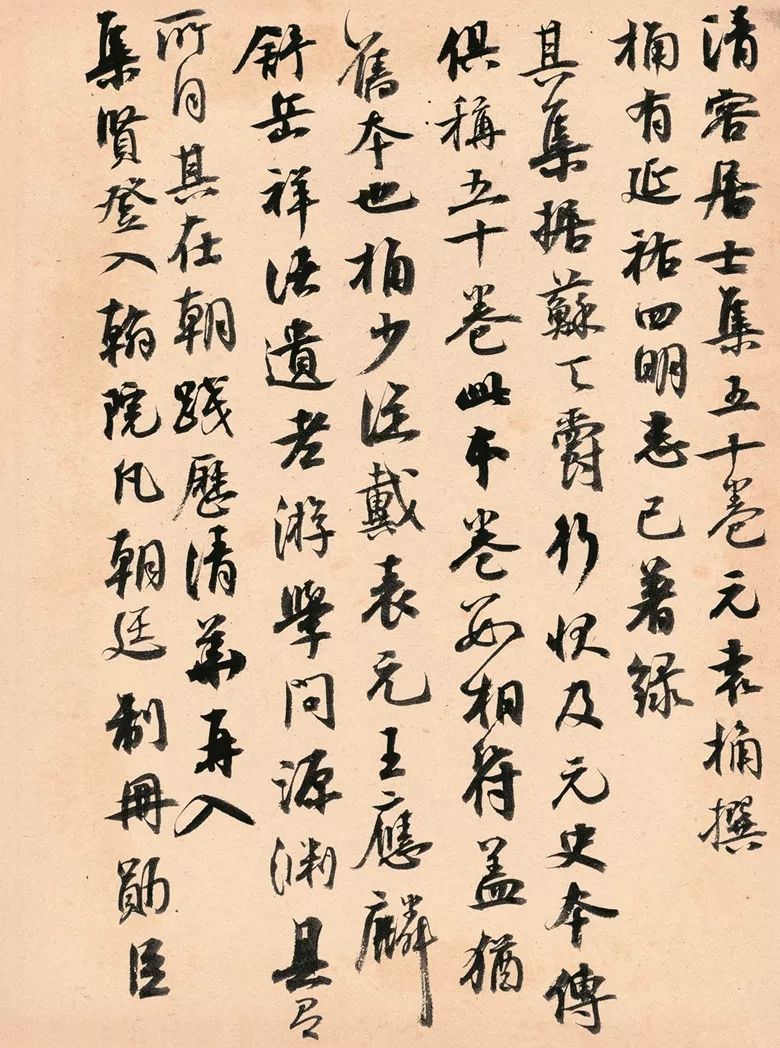 清容居士集五十卷元袁桷撰
桷有延祐四明志已著録
其集据蘇天爵行狀及元史本傳
俱稱五十卷此本卷數相符蓋猶
舊本也桷少從戴表元王應麟
舒岳祥諸遺老游學問源淵具有
所自其在朝踐歷清華再入
集賢登入翰院凡朝廷制冊勛臣